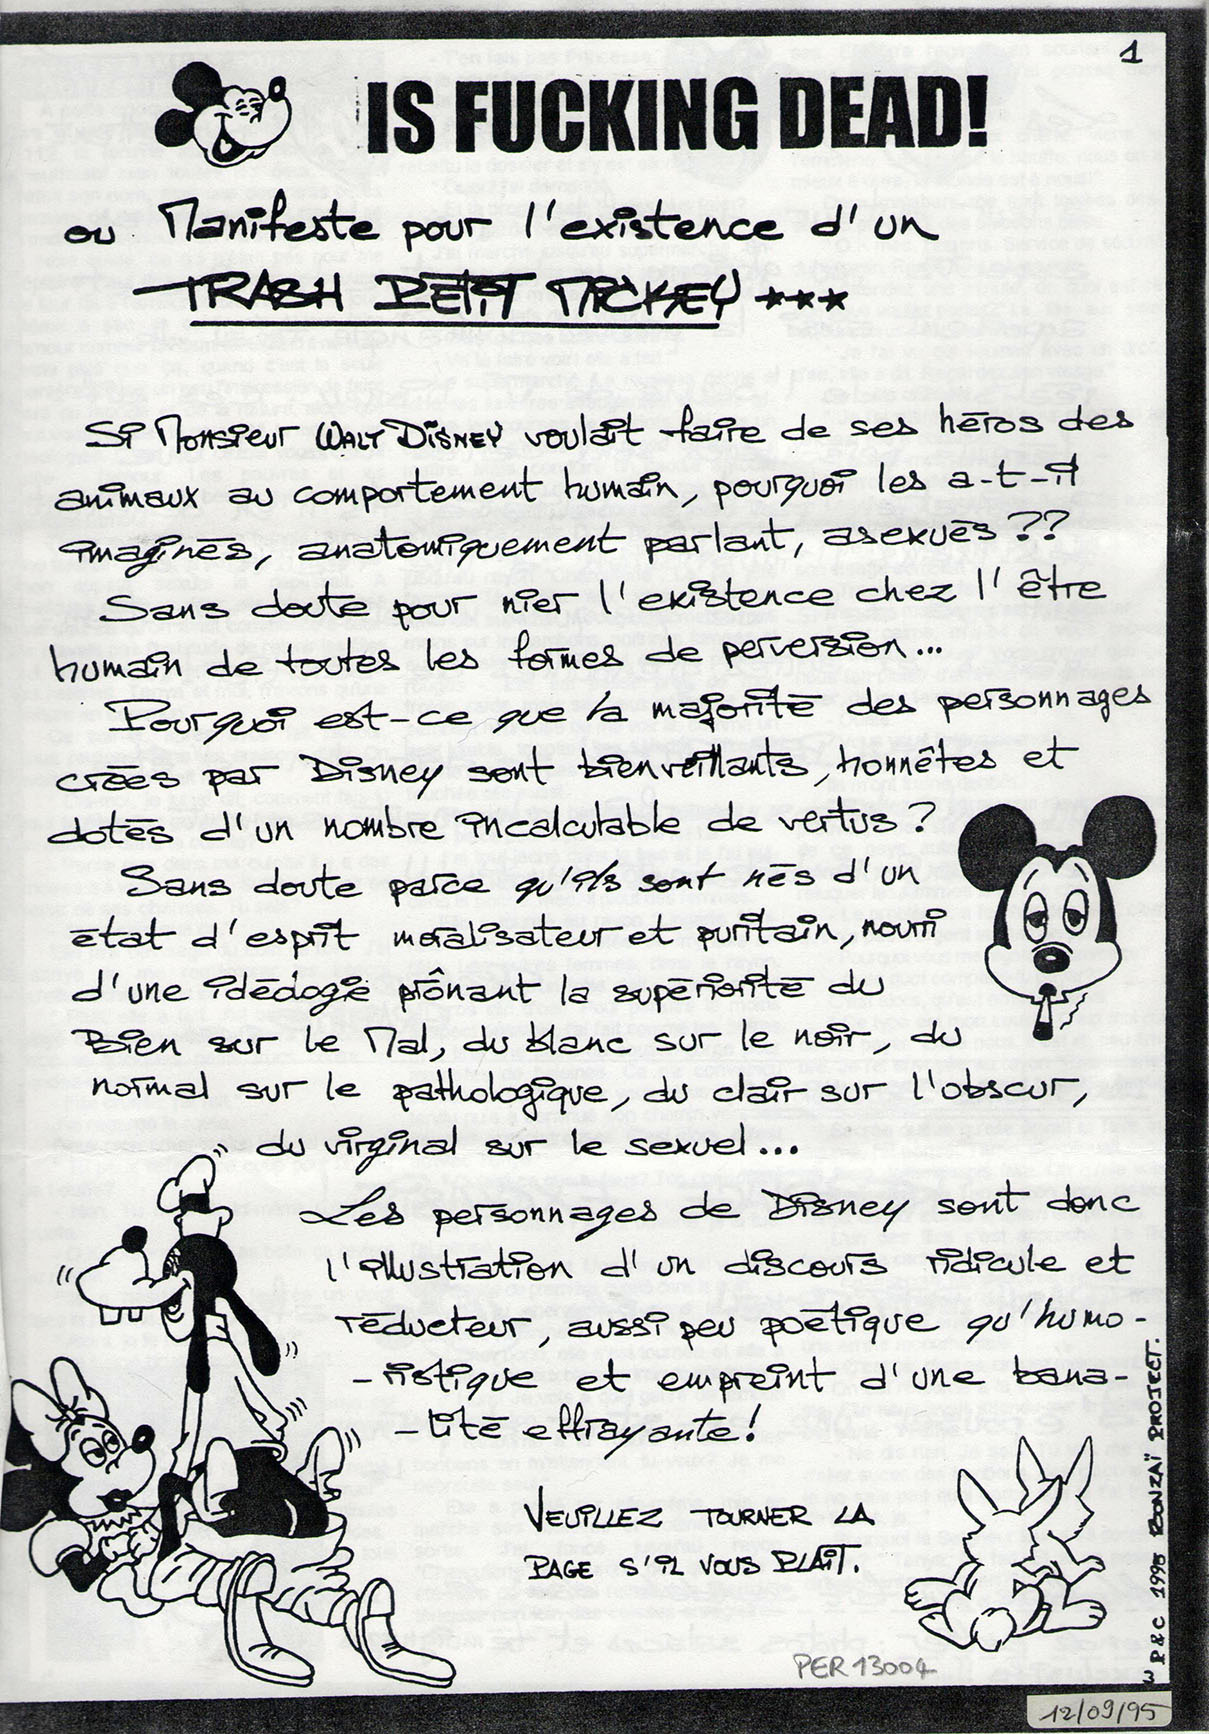 1
IS FUCKING DEAD!
ou Manifeste pour l'existence d'un
TRASH PETIT MICKEY ***
Si Monsieur WALT DISNEY voulait faire de ses héros des
animaux au comportement humain, pourquoi les a-t-il
imaginés, anatomiquement parlant, asexués ??
Sans doute pour nier l'existence chez l'être
humain de toutes les formes de perversion...
Pourquoi est-ce que la majorité des personnages
créés par Disney sont bienveillants, honnêtes et
dotés d'un nombre incalculable de vertus ?
Sans doute parce qu'ils sont nés d'un
état d'esprit moralisateur et puritain, nourri
d'une idéologie prônant la supériorité du
Bien sur le Mal, du blanc sur le noir, du
normal sur le pathologique, du clair sur l'obscur,
du virginal sur le sexuel...
Les personnages de Disney sont donc
l'illustration d'un discours ridicule et
réducteur, aussi peu poétique qu'humo-
-ristique et empreint d'une bana-
-lité effrayante !
VEUILLEZ TOURNER LA
PAGE S'IL VOUS PLAÎT.
P & C 1995 BONZAÏ PROJECT.
PER 13004
12/09/95